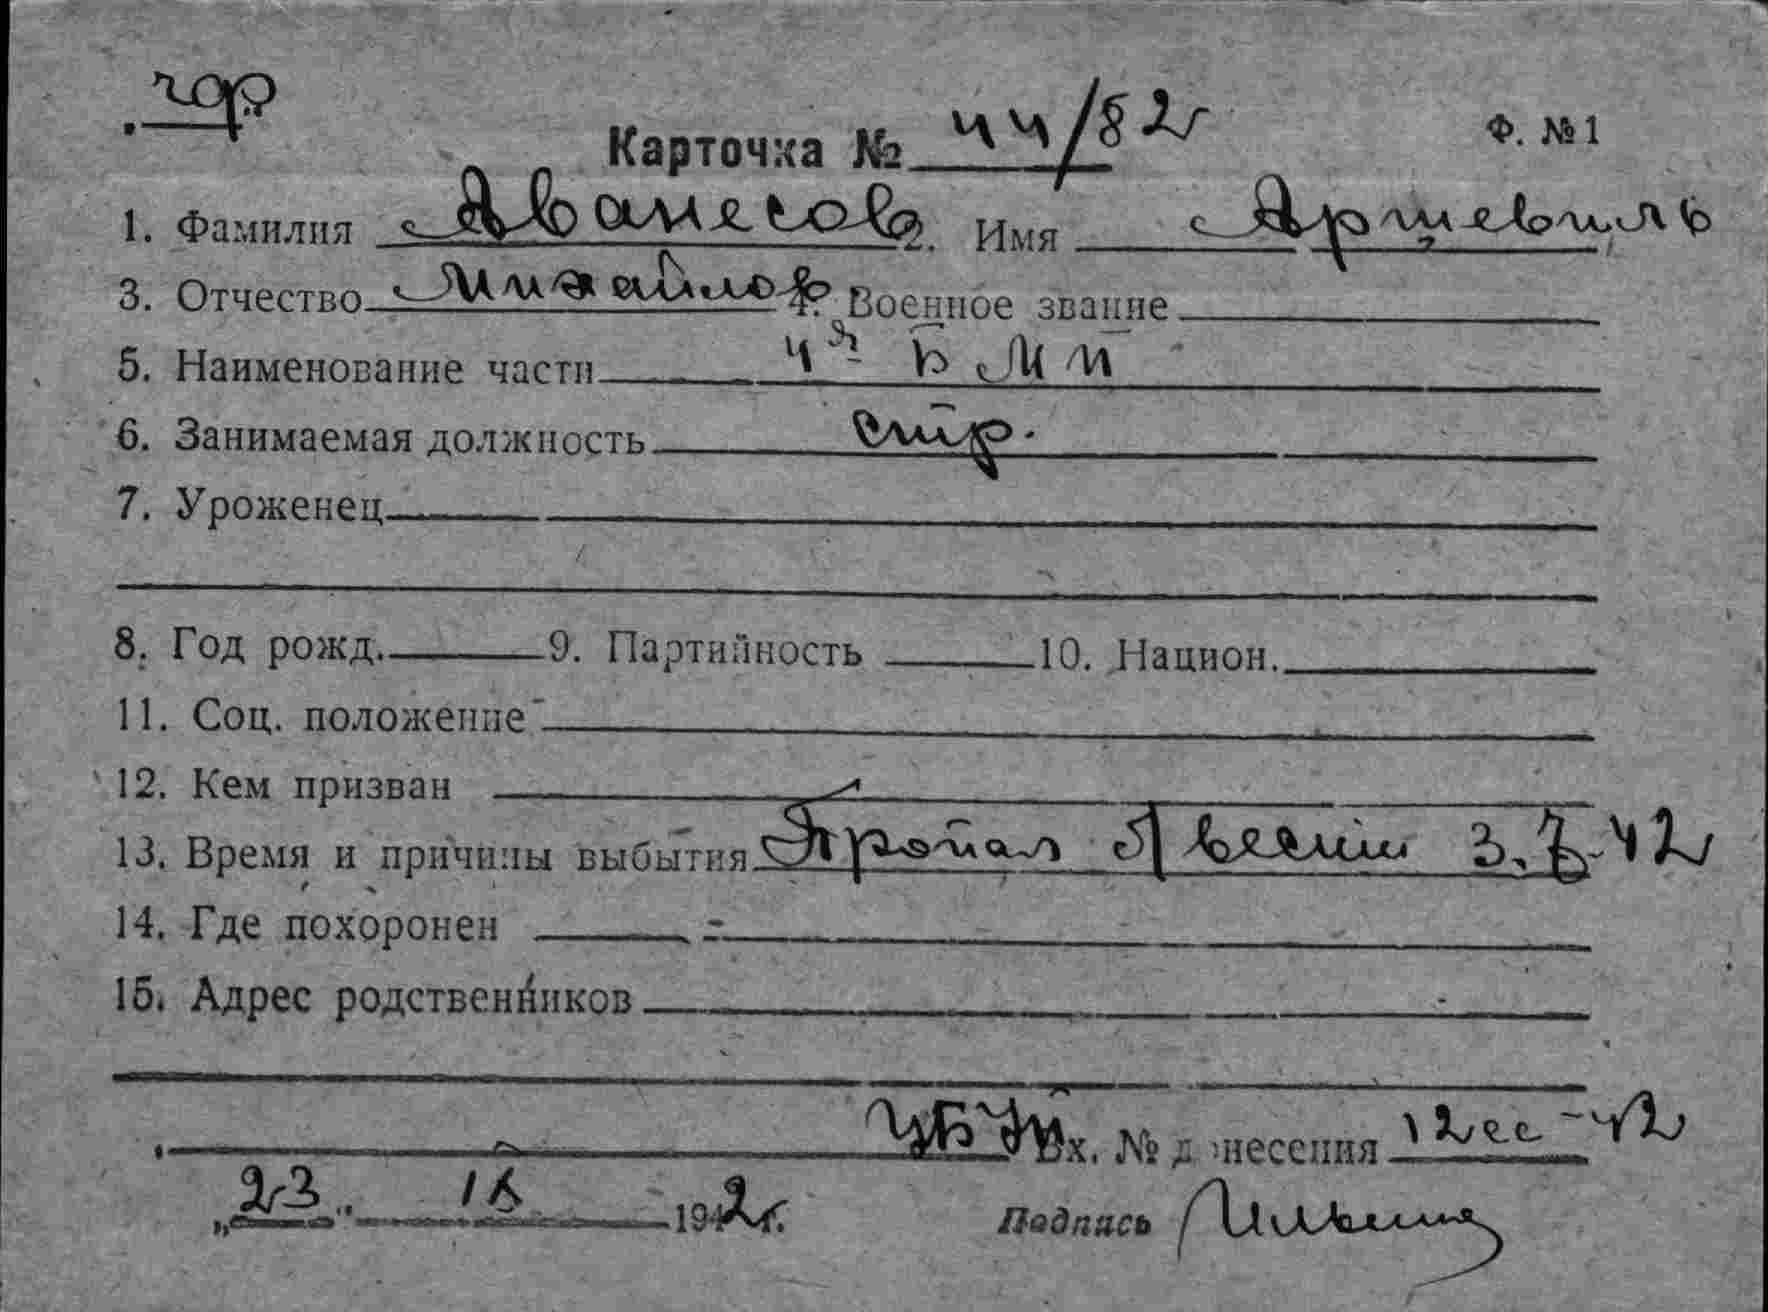 Карточка № 44/82г Ф. №1
1. Фамилия Аванесов 2. Имя
3. Отчество Михайлов 4. Военное звание
5. Наименование части 4й БМП
6. Занимаемая должность стр.
7. Уроженец
8. Год рожд. 9. Партийность 10. Национ.
11. Соц. положение
12. Кем призван
13. Время и причины выбытия Пропал без вести
14. Где похоронен
15. Адрес родственников
Вх. № донесения
„23" 1942г. Подпись